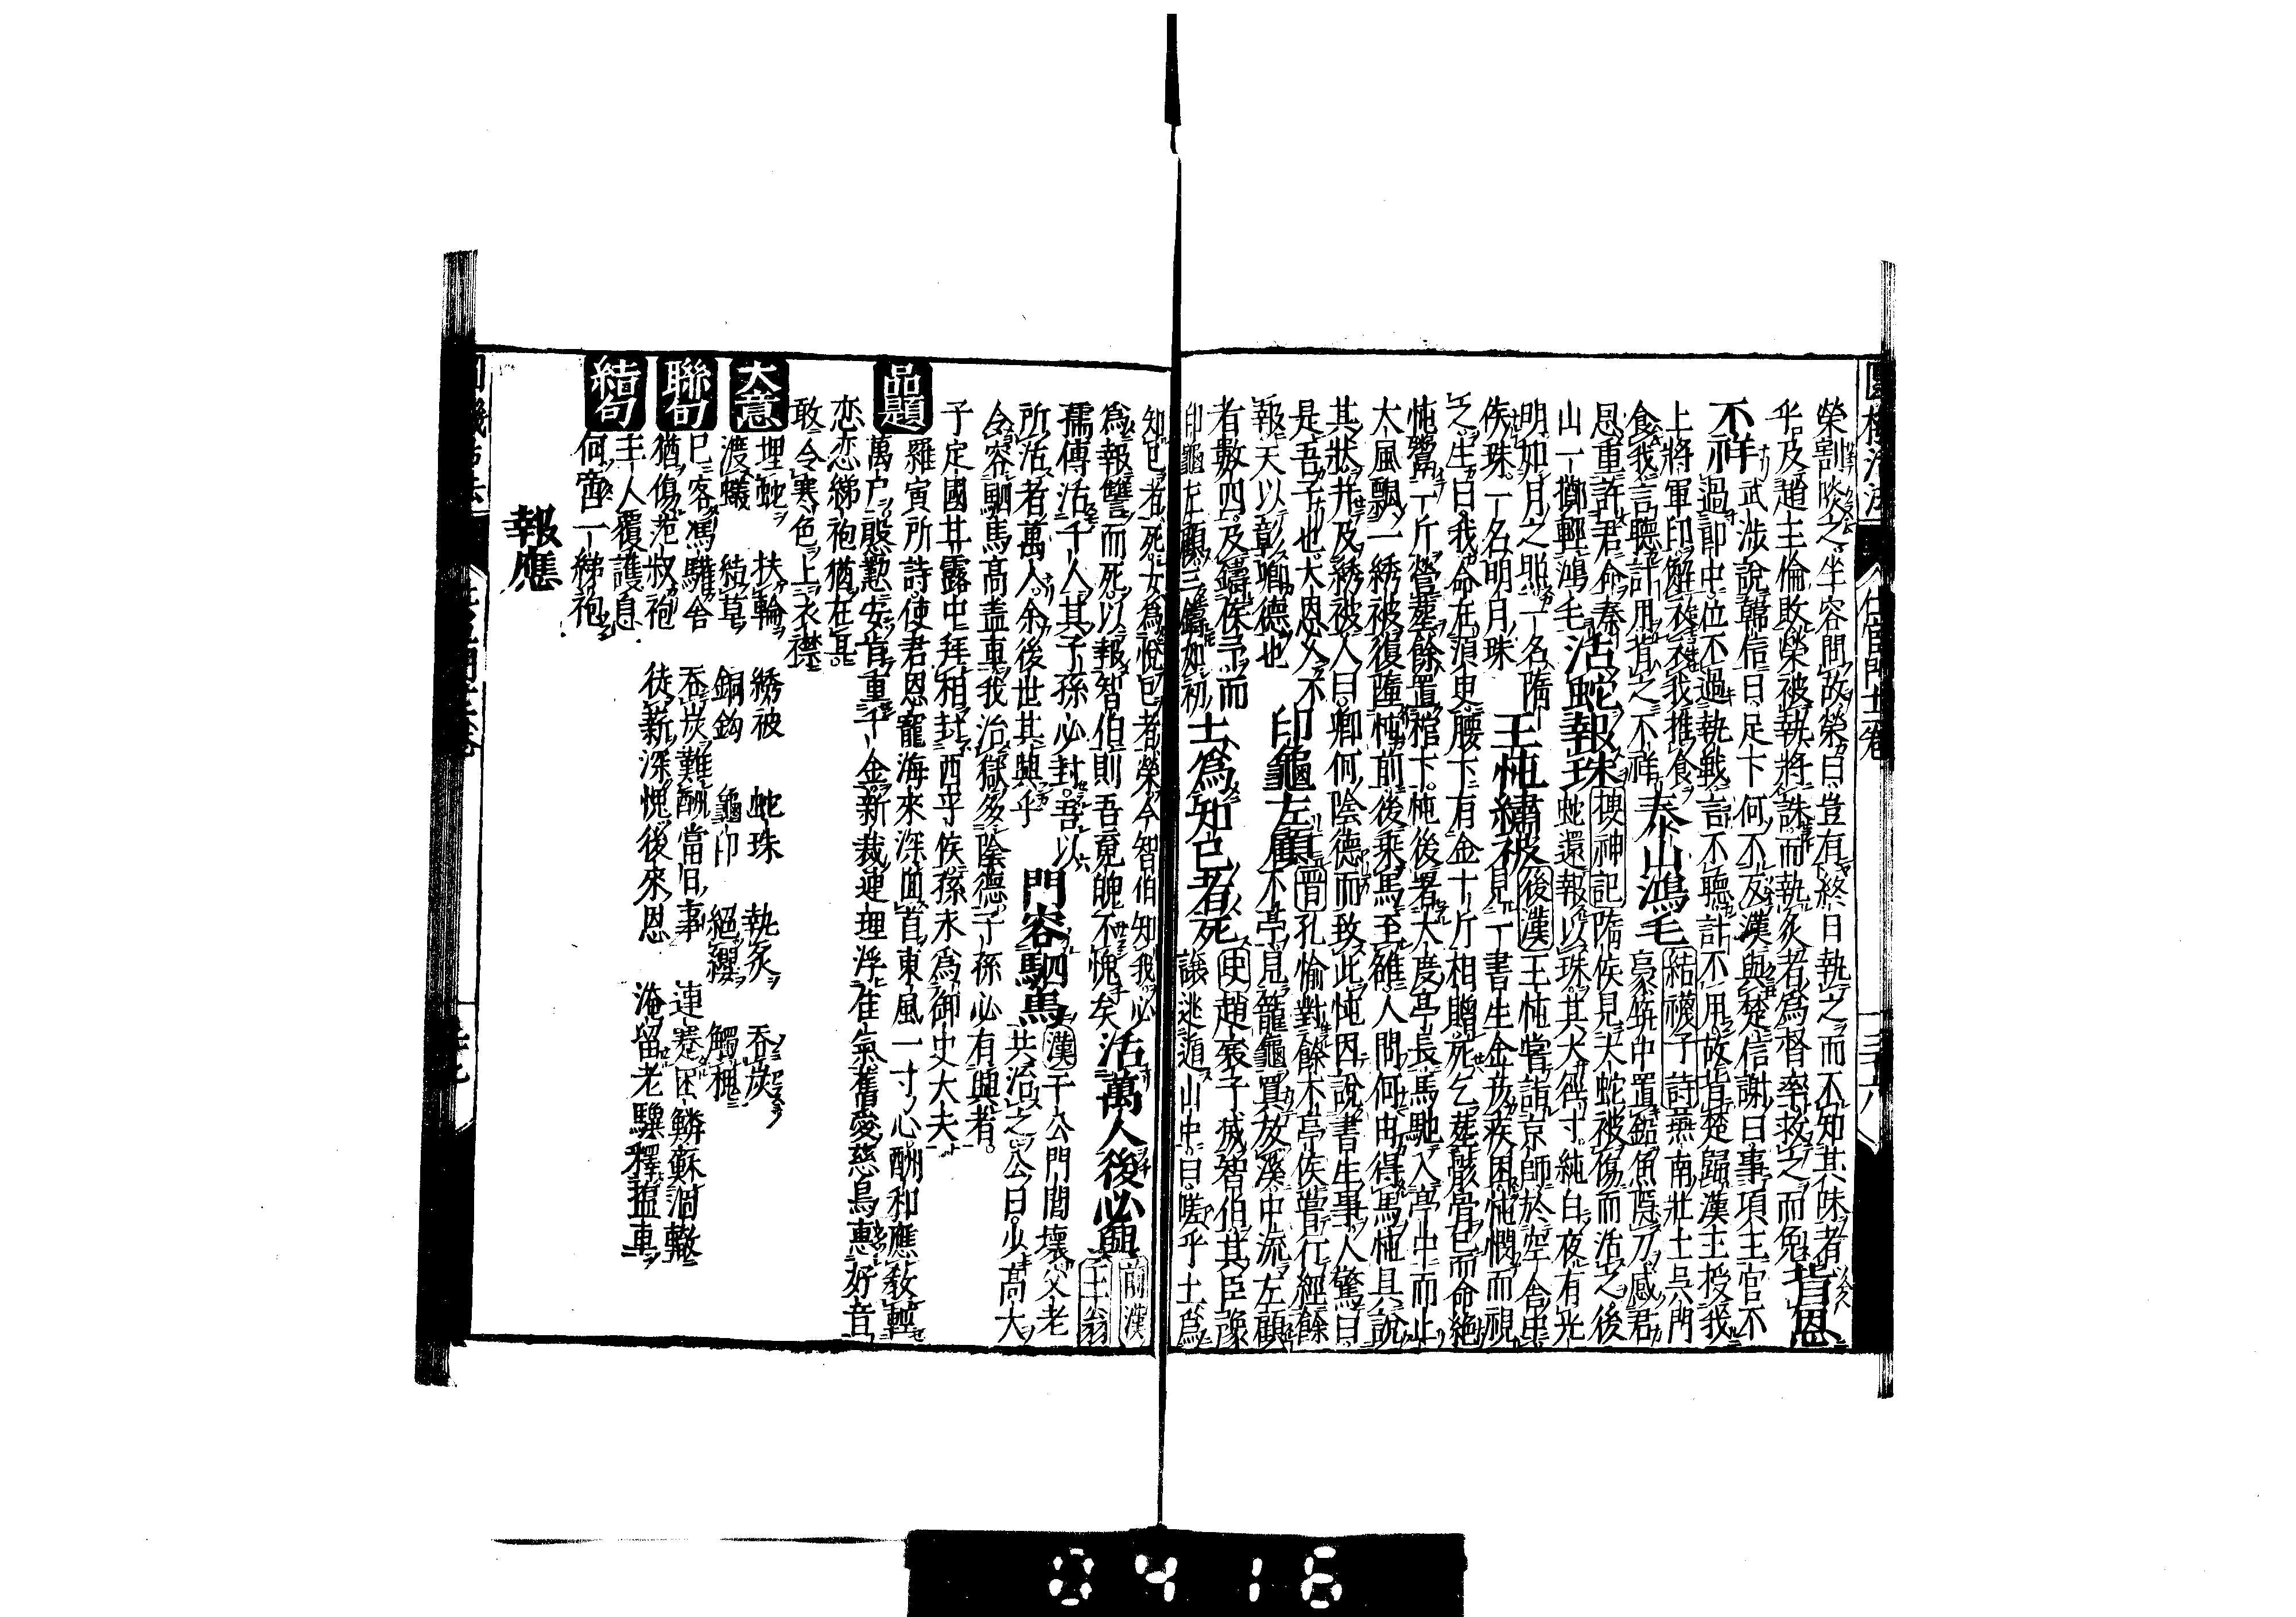 榮割啖之坐客問故榮曰豈有終日執之而不知其味者
乎及趙王倫敗榮被執將誅而執炙者為督率救之而免 背恩
不祥 武涉說韓信曰足下何不反漢與楚信謝曰事項王官不
過郎中位不過執戟言不聽計不用故背楚歸漢王授我
上將軍印解衣衣我推食
食我言聽計用背之不祥 泰山鴻毛 結襪子詩燕南壯士吳門
豪筑中置鉛魚隱刀感君
恩重許君命泰
山一擲輕鴻毛 活蛇報珠 搜神記隋侯見大蛇被傷而活之後
蛇還報以珠其大徑寸純白夜有光
明如月之照一名隋
侯珠一名明月珠 王忳繡被 後漢王忳嘗詣京師於空舍中
見一書生金疾困忳憫而視
之生曰我命在須臾腰下有金十斤相贈死乞葬骸骨已而命絕
忳鬻一斤營葬餘置棺下忳後署大度亭長馬馳入亭中而止
大風飄一綉被復墮忳前後乘馬至雒人問何由得馬忳具說
其狀并及綉被人曰卿何陰德而致此忳因說書生事人驚曰
是吾子也大恩久不
報天以彰卿德也 印龜左顧 晉孔愉對餘不亭侯嘗行經餘
不亭見籠龜買放溪中流左顧
者數四及鑄侯印而
印龜左顧三鑄如初 士為知己者死 史趙襄子滅智伯其臣豫
讓逃遁山中曰嗟乎士為
知己者死女為悅己者榮今智伯知我必
為報讐而死以報智伯則吾竟魄不愧矣 活萬人後必 前漢王翁
孺傳活千人其子孫必封吾以
所活者萬人余後世其興乎 門容駟馬 漢于公門閭壞父老
共治之公曰少高大
令容駟馬高蓋車我治獄多陰德子孫必有興者
子定國其露中拜相封西平侯孫永為御史大夫
品題 羅寅所詩使君恩寵海來深回首東風一寸心酬和應教輕
萬户殷懃安肯重千金新裁連理浮佳氣舊愛慈烏惠好音
恋恋綈袍猶在
敢令寒色上衣襟
大意 埋蛇 扶輪 綉被 蛇珠 執炙 吞炭
渡蟻 結草 銅鈎 龜印 絕纓 觸槐
聯句 已客馮驩舍 吞炭難酬當日事 連蹇困鱗蘇涸轍
猶傷范叔袍 徒薪深愧後來恩 淹留老驥釋鹽車
結句 主人覆護息
何啻一綈袍
報應